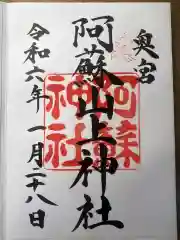 奥宮
阿蘇山上神社
令和六年一月二十八日
阿蘇
神社